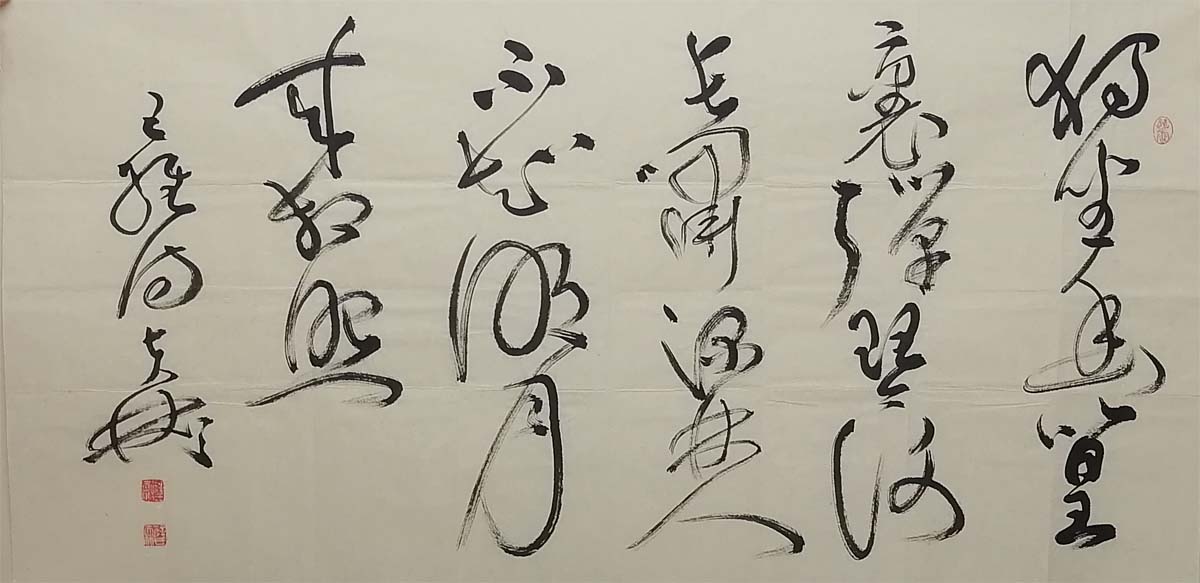 獨坐幽篁
裏彈琴復
長嘯深林人
不知明月
来相照
王維诗